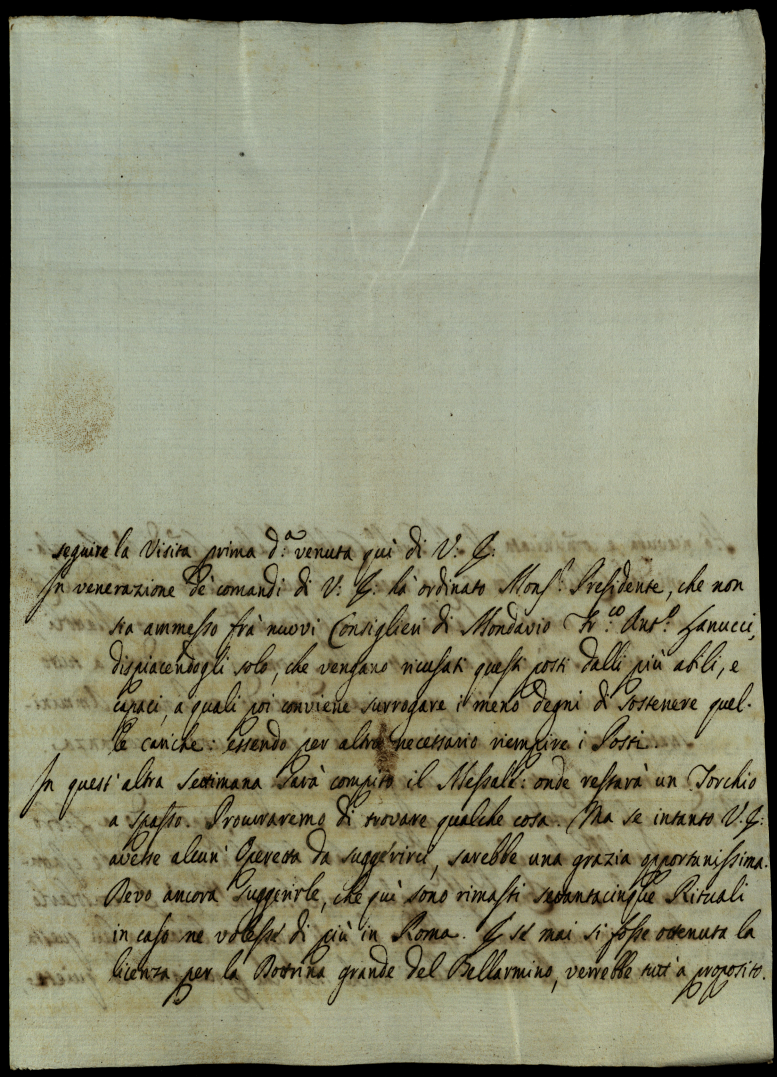 seguire la Visita prima d.ª venuta quì di V: E:
In venerazione de' comandi di V: E: hà ordinato Mons.r Presidente, che non
sia ammesso frà nuovi Consiglieri di Mondavio Fr.co Ant.o Zanucci,
dispiacendogli solo, che vengano ricusati questi posti dalli più abili, e
capaci, a quali poi conviene surrogare i meno degni di sostenere quel-
le cariche: essendo per altro necessario riempire i Posti.
In quest' altra settimana sarà compito il Messale: onde restarà un Torchio
a spasso. Procuraremo di trovare qualche cosa. Ma se intanto V. E:
avesse alcun' Operetta da suggerirci, sarebbe una grazia opportunissima.
Devo ancora suggerirle, che quì sono rimasti settantacinque Rituali
in caso ne volesse di più in Roma. E se mai si fosse ottenuta la
licenza per la Dottrina grande del Bellarmino, verrebbe tutt' a proposito.